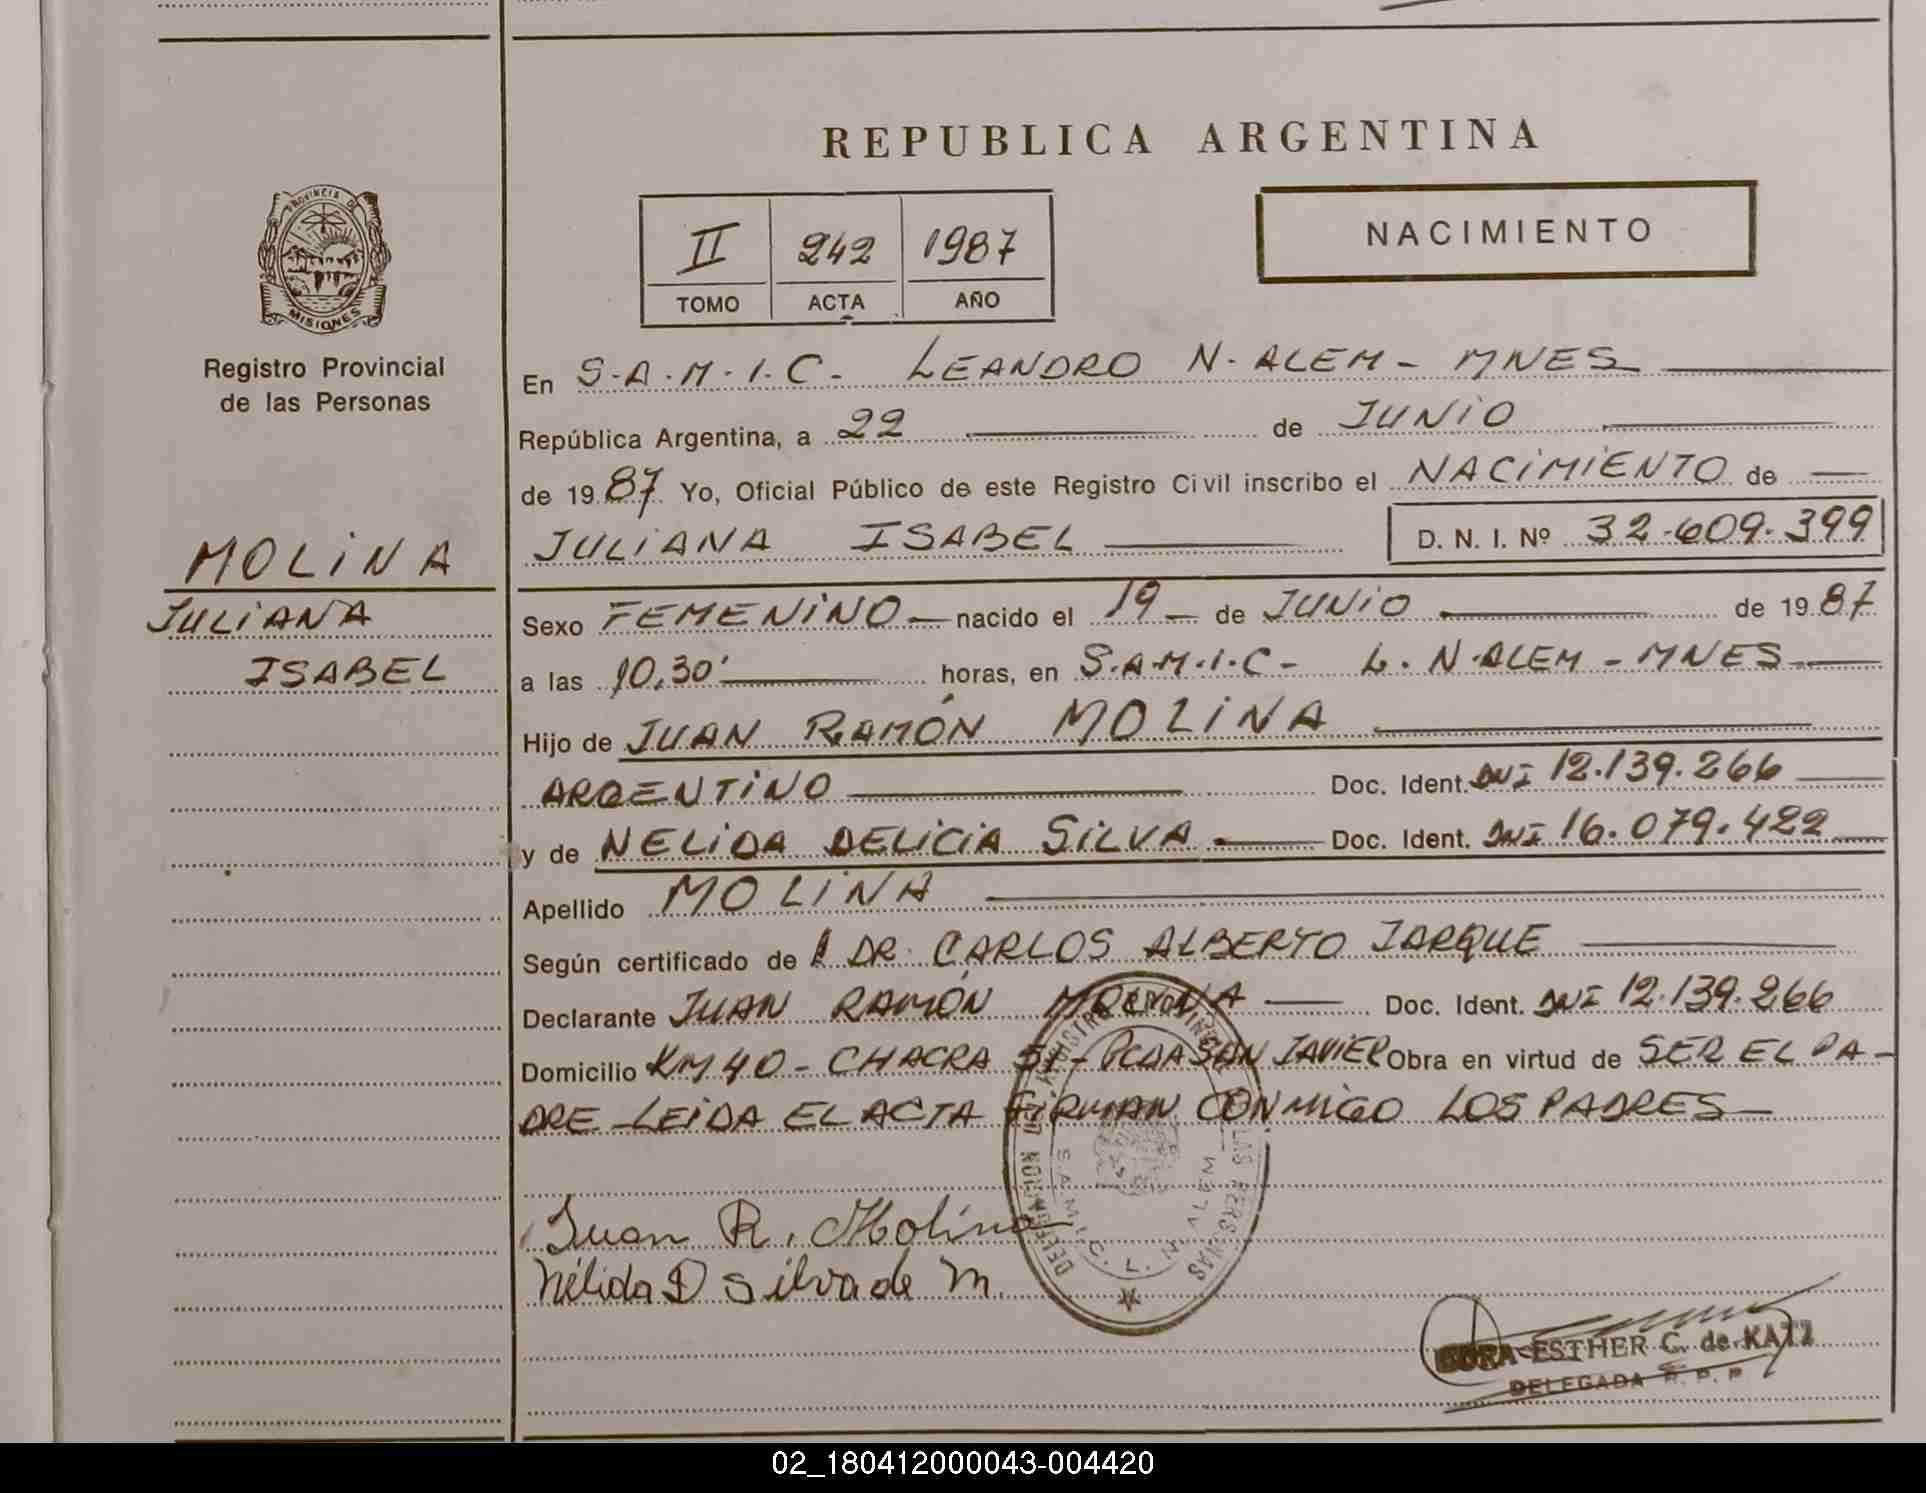 REPUBLICA ARGENTINA
PROVINCIA DE
MISIONES
Registro Provincial
de las Personas
MOLINA
JULIANA
ISABEL
II 242 1987
TOMO ACTA AÑO
NACIMIENTO
En S.A.M.I.C. LEANDRO N. ALEM - MNES
República Argentina, a 22 de JUNIO
de 1987 Yo, Oficial Público de este Registro Civil inscribo el NACIMIENTO de
JULIANA ISABEL D. N. I. Nº 32.609.399
Sexo FEMENINO nacido el 19 de JUNIO de 1987
a las 10,30' horas, en S.A.M.I.C - L. N. ALEM - MNES
Hijo de JUAN RAMÓN MOLINA
ARGENTINO Doc. Ident. DNI 12.139.266
y de NELIDA DELICIA SILVA Doc. Ident. DNI 16.079.422
Apellido MOLINA
Según certificado de DR. CARLOS ALBERTO JARQUE
Declarante JUAN RAMÓN MOLINA Doc. Ident. DNI 12.139.266
Domicilio KM 40 - CHACRA 51 - PCDA SAN JAVIER Obra en virtud de SER EL PA-
DRE - LEIDA EL ACTA FIRMAN CONMIGO LOS PADRES
Juan R. Molina
Nélida D Silva de M.
S.A.M.I.C. L. N. ALEM
ESTHER C. de KATZ
DELEGADA R. P. P.
02_180412000043-004420